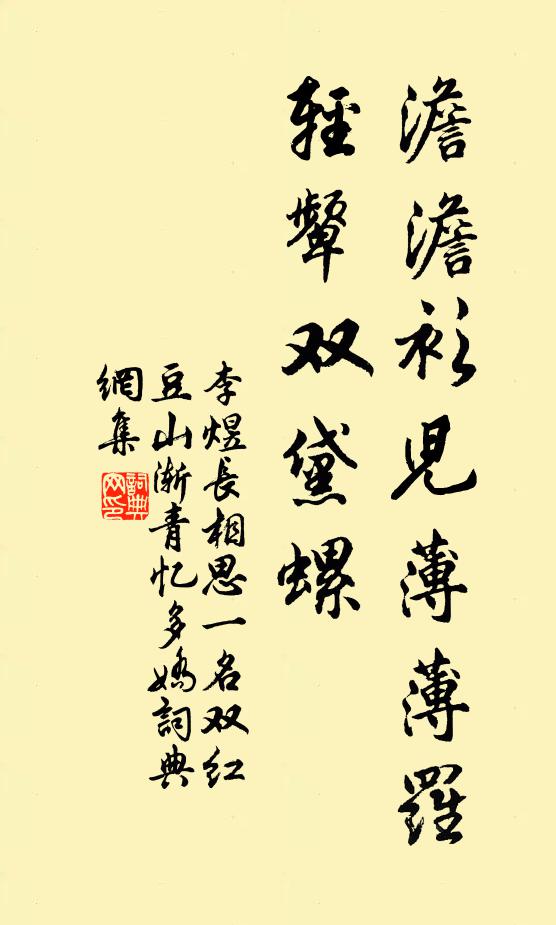 澹澹衫児薄薄羅
輕顰双黛螺
李煜長相思一名双红
豆山漸青忆多嬌詞典
網集
詞典网印